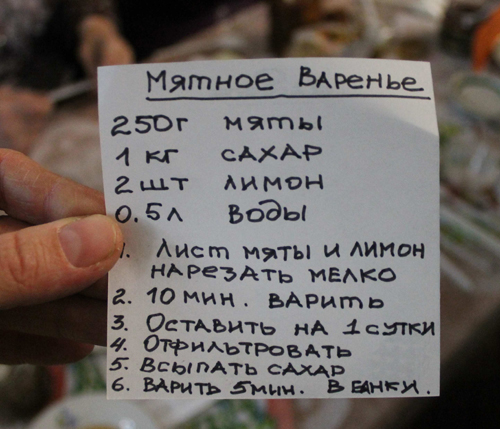 Мятное Варенье
250г мяты
1 кг сахар
2 шт лимон
0.5л воды
1. Лист мяты и лимон
нарезать мелко
2. 10 мин. варить
3. Оставить на 1 сутки
4. Отфильтровать
5. Всыпать сахар
6. Варить 5мин. В банки.